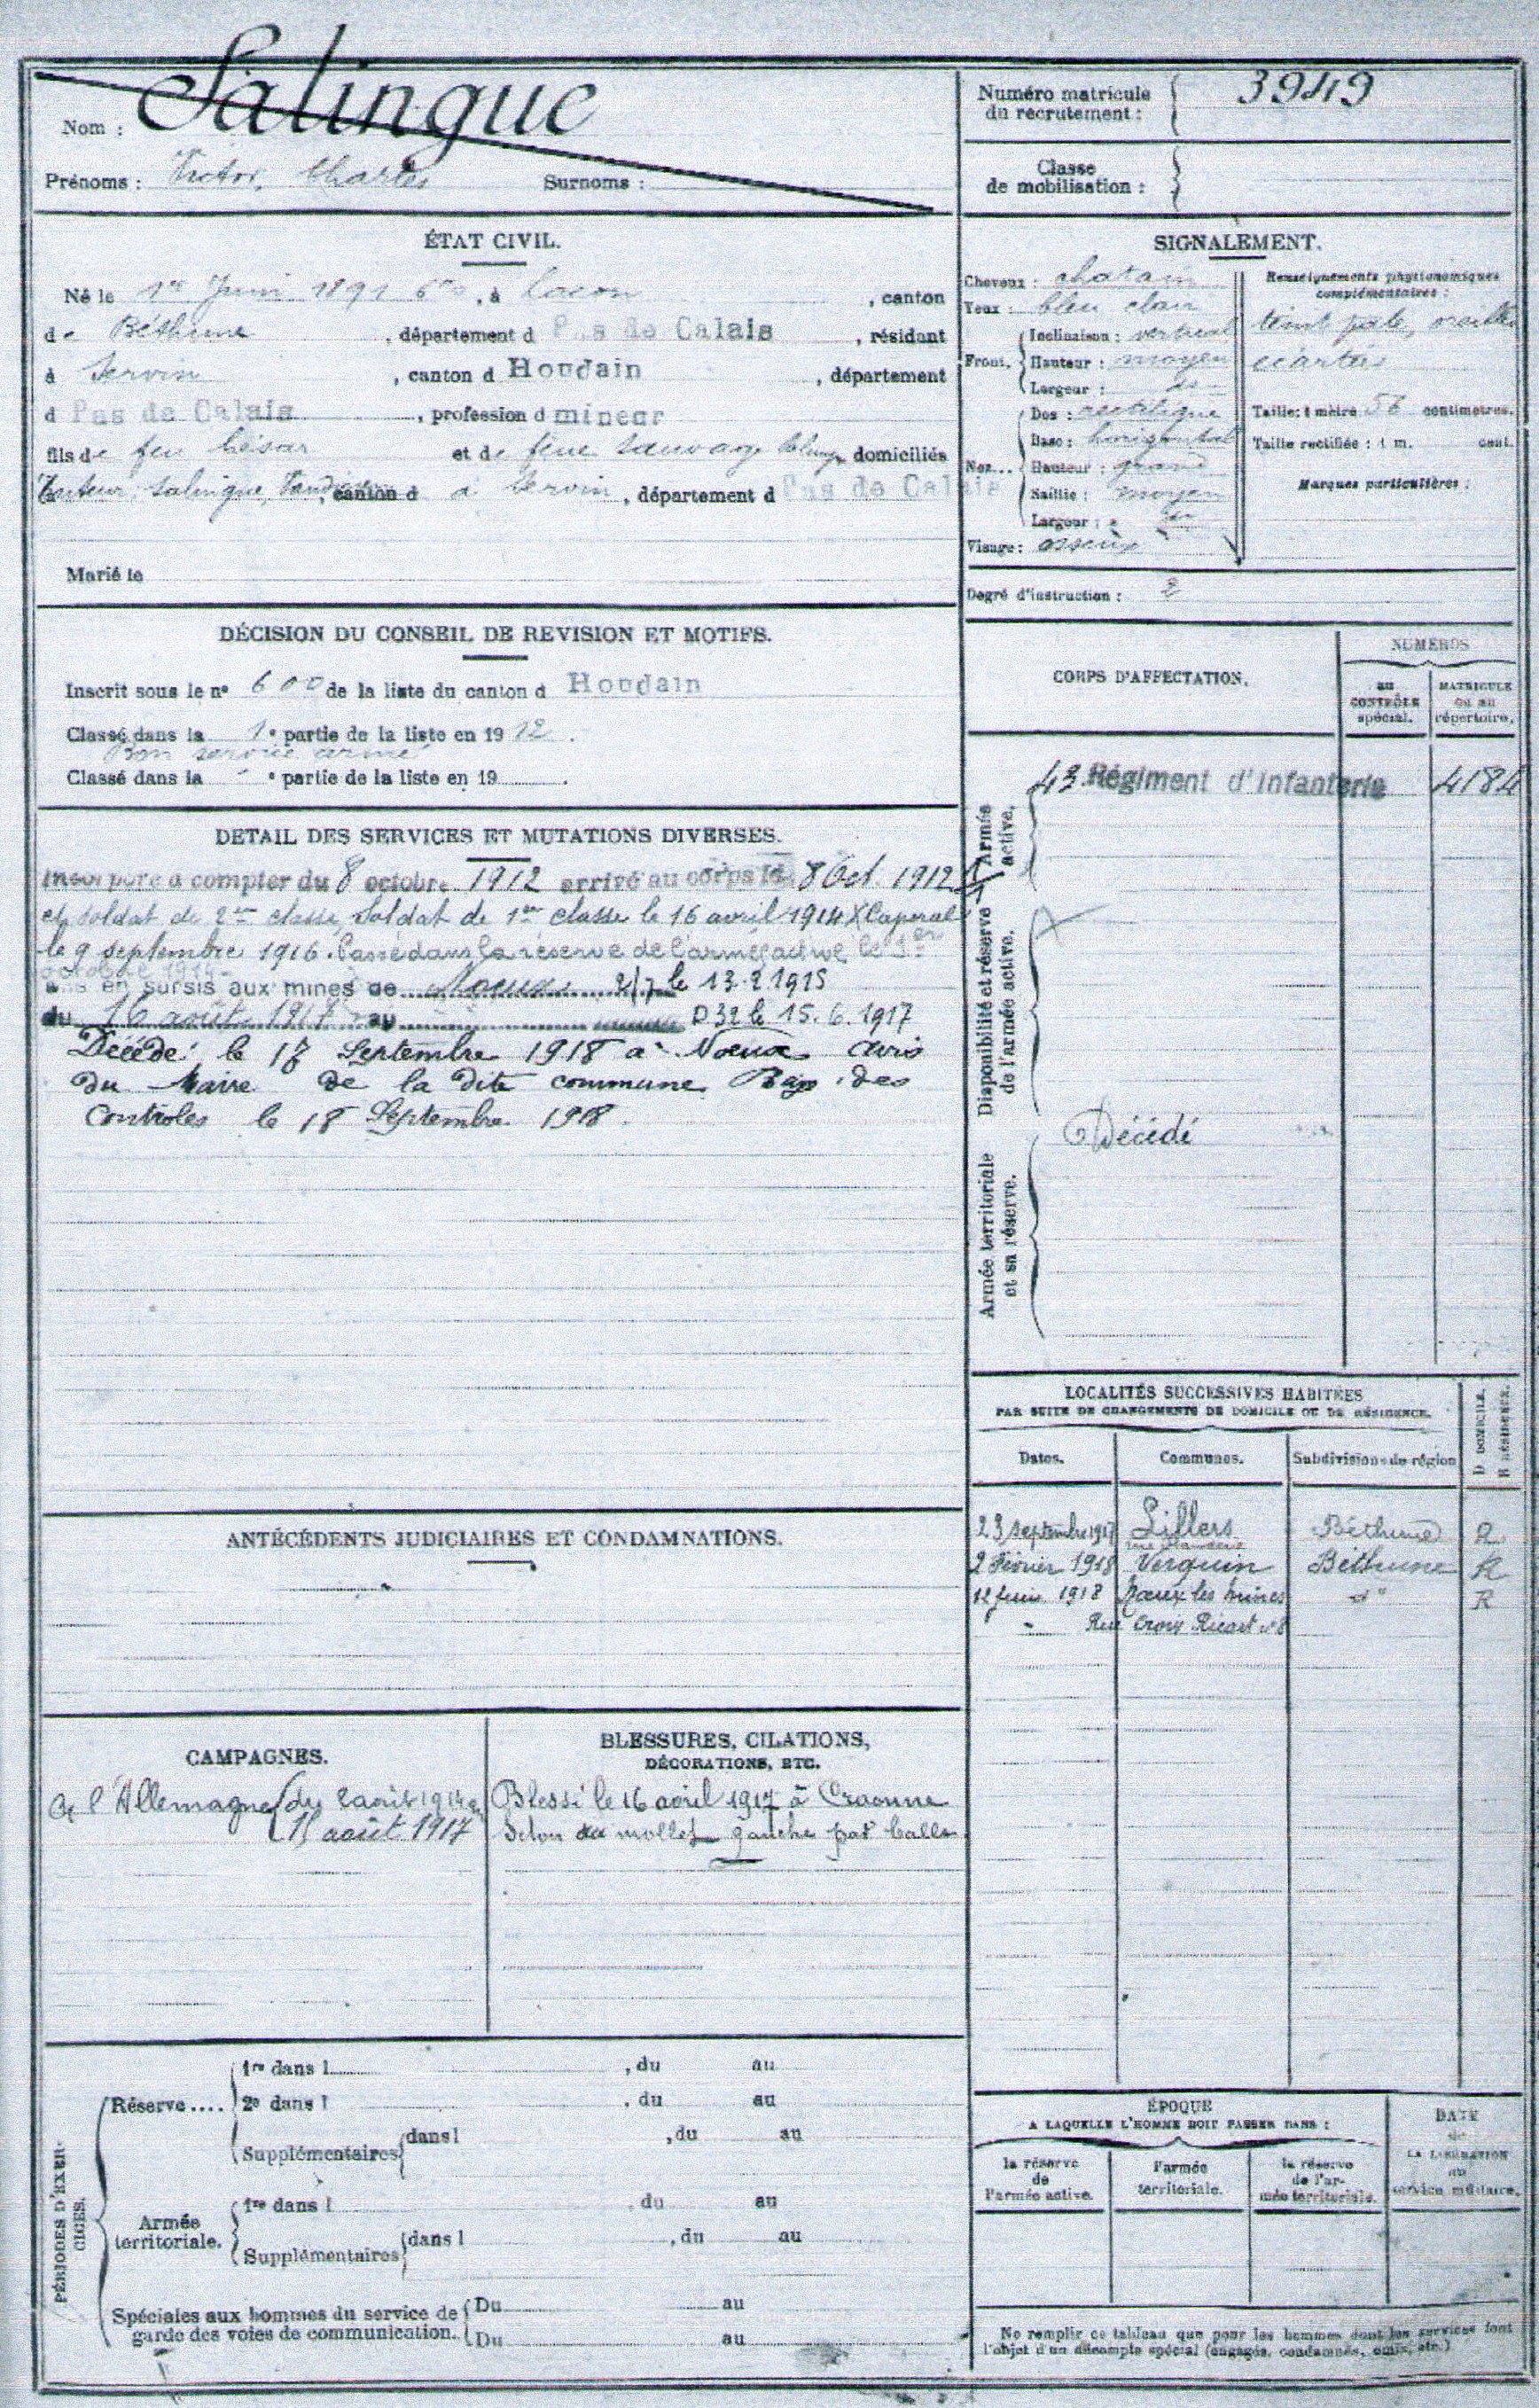 Nom : Salingue
Prénoms : Victor, Charles Surnoms :
Numéro matricule du recrutement : 3949
Classe de mobilisation :
ÉTAT CIVIL.
Né le 1er Juin 1891, à Locon, canton
de Béthune, département d Pas de Calais, résidant
à Servin, canton d Houdain, département
d Pas de Calais, profession d mineur
fils de feu César et de feue Sauvage domiciliés
Tuteur: Salingue, canton d à Servin, département d Pas de Calais
Marié le
SIGNALEMENT.
Cheveux : chatain
Yeux : bleu clair
Front. Inclinaison : vertical
Hauteur : moyen
Largeur : do
Nez... Dos : rectiligne
Base : horizontal
Hauteur : grand
Saillie : moyen
Largeur :
Visage : osseux
Renseignements physionomiques complémentaires :
teint pale, oreilles
écartées
Taille : 1 mètre 56 centimètres.
Taille rectifiée : 1 m. cent.
Marques particulières :
Degré d'instruction : 2
DÉCISION DU CONSEIL DE REVISION ET MOTIFS.
Inscrit sous le n° 600 de la liste du canton d Houdain
Classé dans la 1e partie de la liste en 1912.
Bon service armé
Classé dans la e partie de la liste en 19 .
CORPS D'AFFECTATION.
NUMÉROS
au CONTRÔLE spécial.
MATRICULE ou au répertoire.
Armée active.
43 Régiment d'Infanterie 4184
Disponibilité et réserve de l'armée active.
Armée territoriale et sa réserve.
Décédé
DÉTAIL DES SERVICES ET MUTATIONS DIVERSES.
Incorporé à compter du 8 octobre 1912 arrivé au corps le 8 Oct. 1912
et soldat de 2me classe, Soldat de 1ere classe le 16 avril 1914 X Caporal
le 9 septembre 1916. Passé dans la réserve de l'armée active le 1er
octobre 1914.
en sursis aux mines de Noeux 2/7 le 13.2.1915
du 16 août 1917 au D 32 le 15.6.1917
Décédé le 17 Septembre 1918 à Noeux avis
du Maire de la dite commune Ray. des
Controles le 18 Septembre 1918.
LOCALITÉS SUCCESSIVES HABITÉES
PAR SUITE DE CHANGEMENTS DE DOMICILE OU DE RÉSIDENCE.
Dates. Communes. Subdivisions de région D DOMICILE. R RÉSIDENCE.
23 septembre 1917 Lillers Béthune R
2 Février 1918 Verquin Béthune R
12 1918 Noeux les Mines d° R
Rue Croix Ricart n° 8
ANTÉCÉDENTS JUDICIAIRES ET CONDAMNATIONS.
CAMPAGNES.
C. l'Allemagne du 2 août 1914 au
15 août 1917
BLESSURES, CITATIONS,
DÉCORATIONS, ETC.
Blessé le 16 avril 1917 à Craonne
Seton au mollet gauche par balle
PÉRIODES D'EXERCICES.
Réserve.... 1re dans l , du au
2e dans l , du au
Supplémentaires dans l , du au
Armée territoriale. 1re dans l , du au
Supplémentaires dans l , du au
Spéciales aux hommes du service de garde des voies de communication. Du au
Du au
ÉPOQUE
A LAQUELLE L'HOMME DOIT PASSER DANS :
la réserve de l'armée active.
l'armée territoriale.
la réserve de l'armée territoriale.
DATE de LA LIBÉRATION du service militaire.
Ne remplir ce tableau que pour les hommes dont les services font
l'objet d'un décompte spécial (engagés, condamnés, omis, etc.)